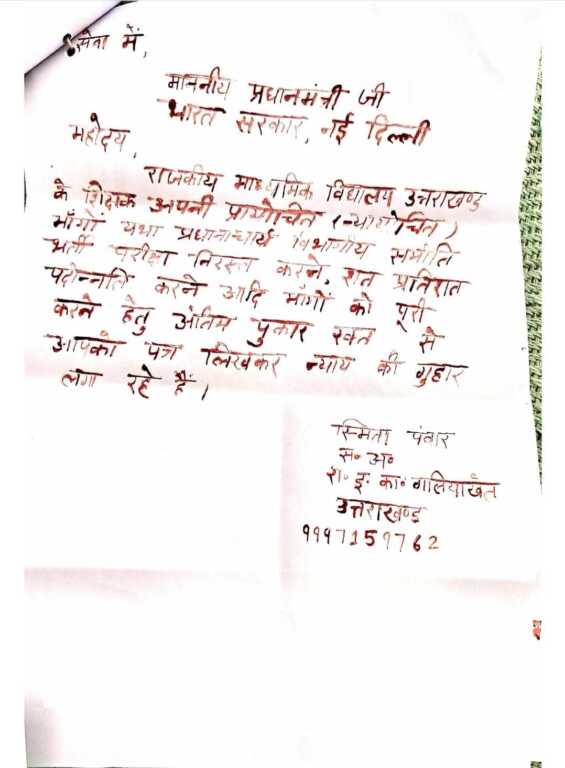 सेवा में,
माननीय प्रधानमंत्री जी
भारत सरकार, नई दिल्ली
महोदय,
राजकीय माध्यमिक विद्यालय उत्तराखण्ड
के शिक्षक अपनी प्रायोचित (न्यायोचित)
माँगों यथा प्रधानाचार्य विभागीय सीमित
भर्ती परीक्षा निरस्त करने, शत प्रतिशत
पदोन्नति करने आदि माँगों को पूरी
करने हेतु अंतिम पुकार रक्त से
आपको पत्र लिखकर न्याय की गुहार
लगा रहे हैं।
स्मिता पंवार
स॰ अ॰
रा॰ इ॰ का॰ गलियाखेत
उत्तराखण्ड